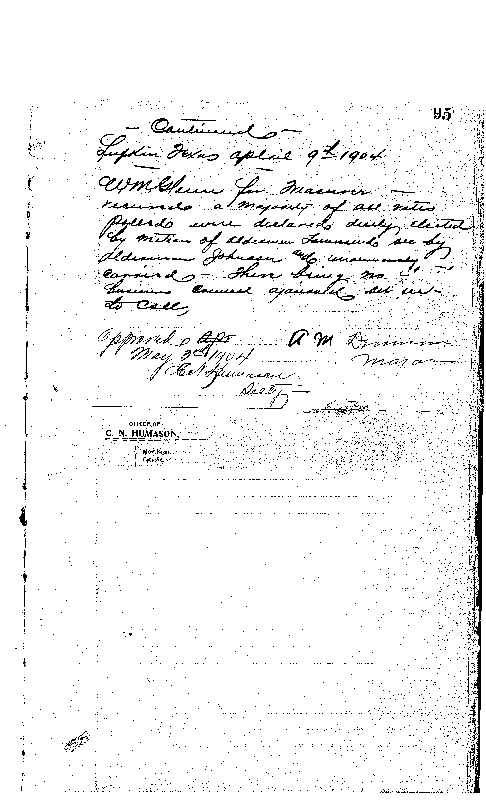 95
— Continued —
Lufkin Texas April 9th 1904
W M Glenn for
received a majority of all votes
polled were declared duly elected
by motion of Alderman Townsend sec by
Alderman Johnson and unanimously
carried — there being no
business council adjourned
to call
Approved
May 3rd 1904
C N Humason
Secty
A M
Mayor
OFFICE OF
C. N. HUMASON,